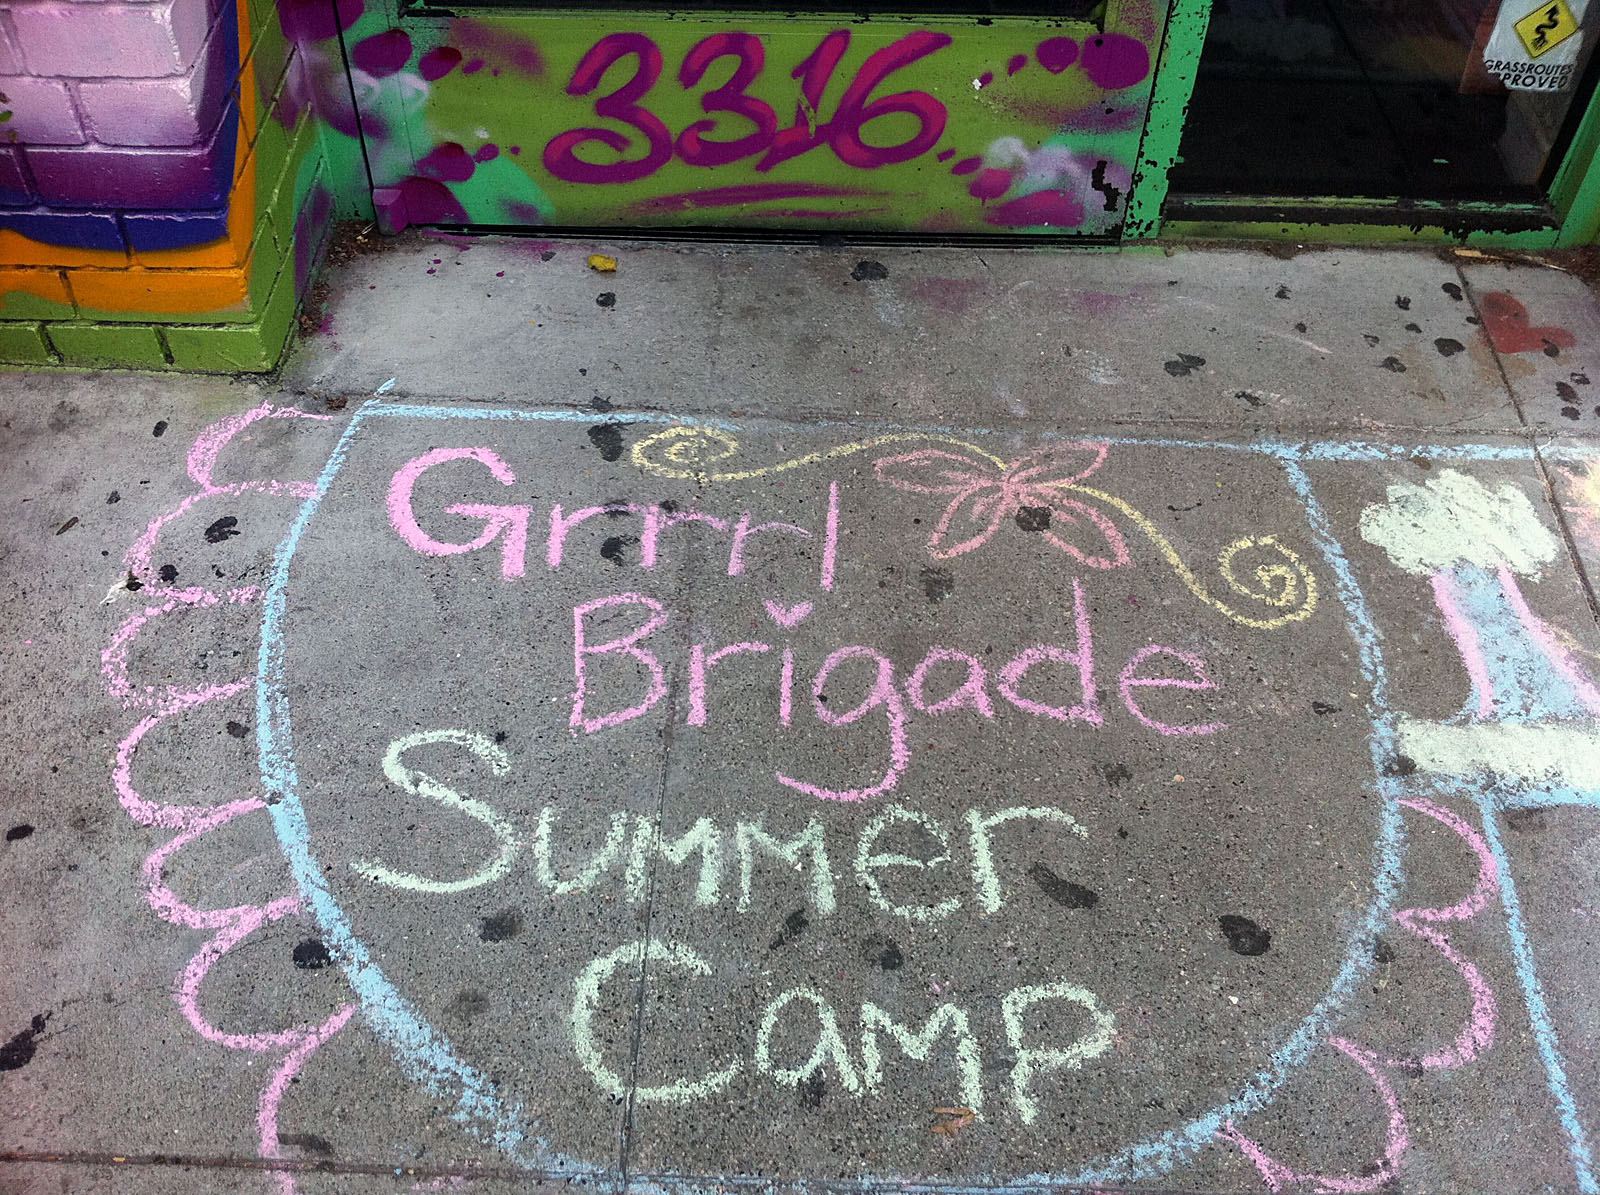 3316
GRASSROUTES
Grrrl
Brigade
Summer
Camp